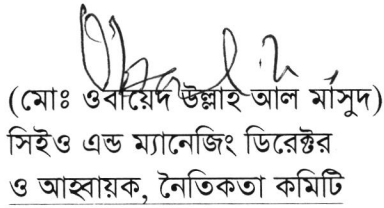 (মোঃ ওবায়েদ উল্লাহ আল মাসুদ)
সিইও এন্ড ম্যানেজিং ডিরেক্টর
ও আহবায়ক, নৈতিকতা কমিটি